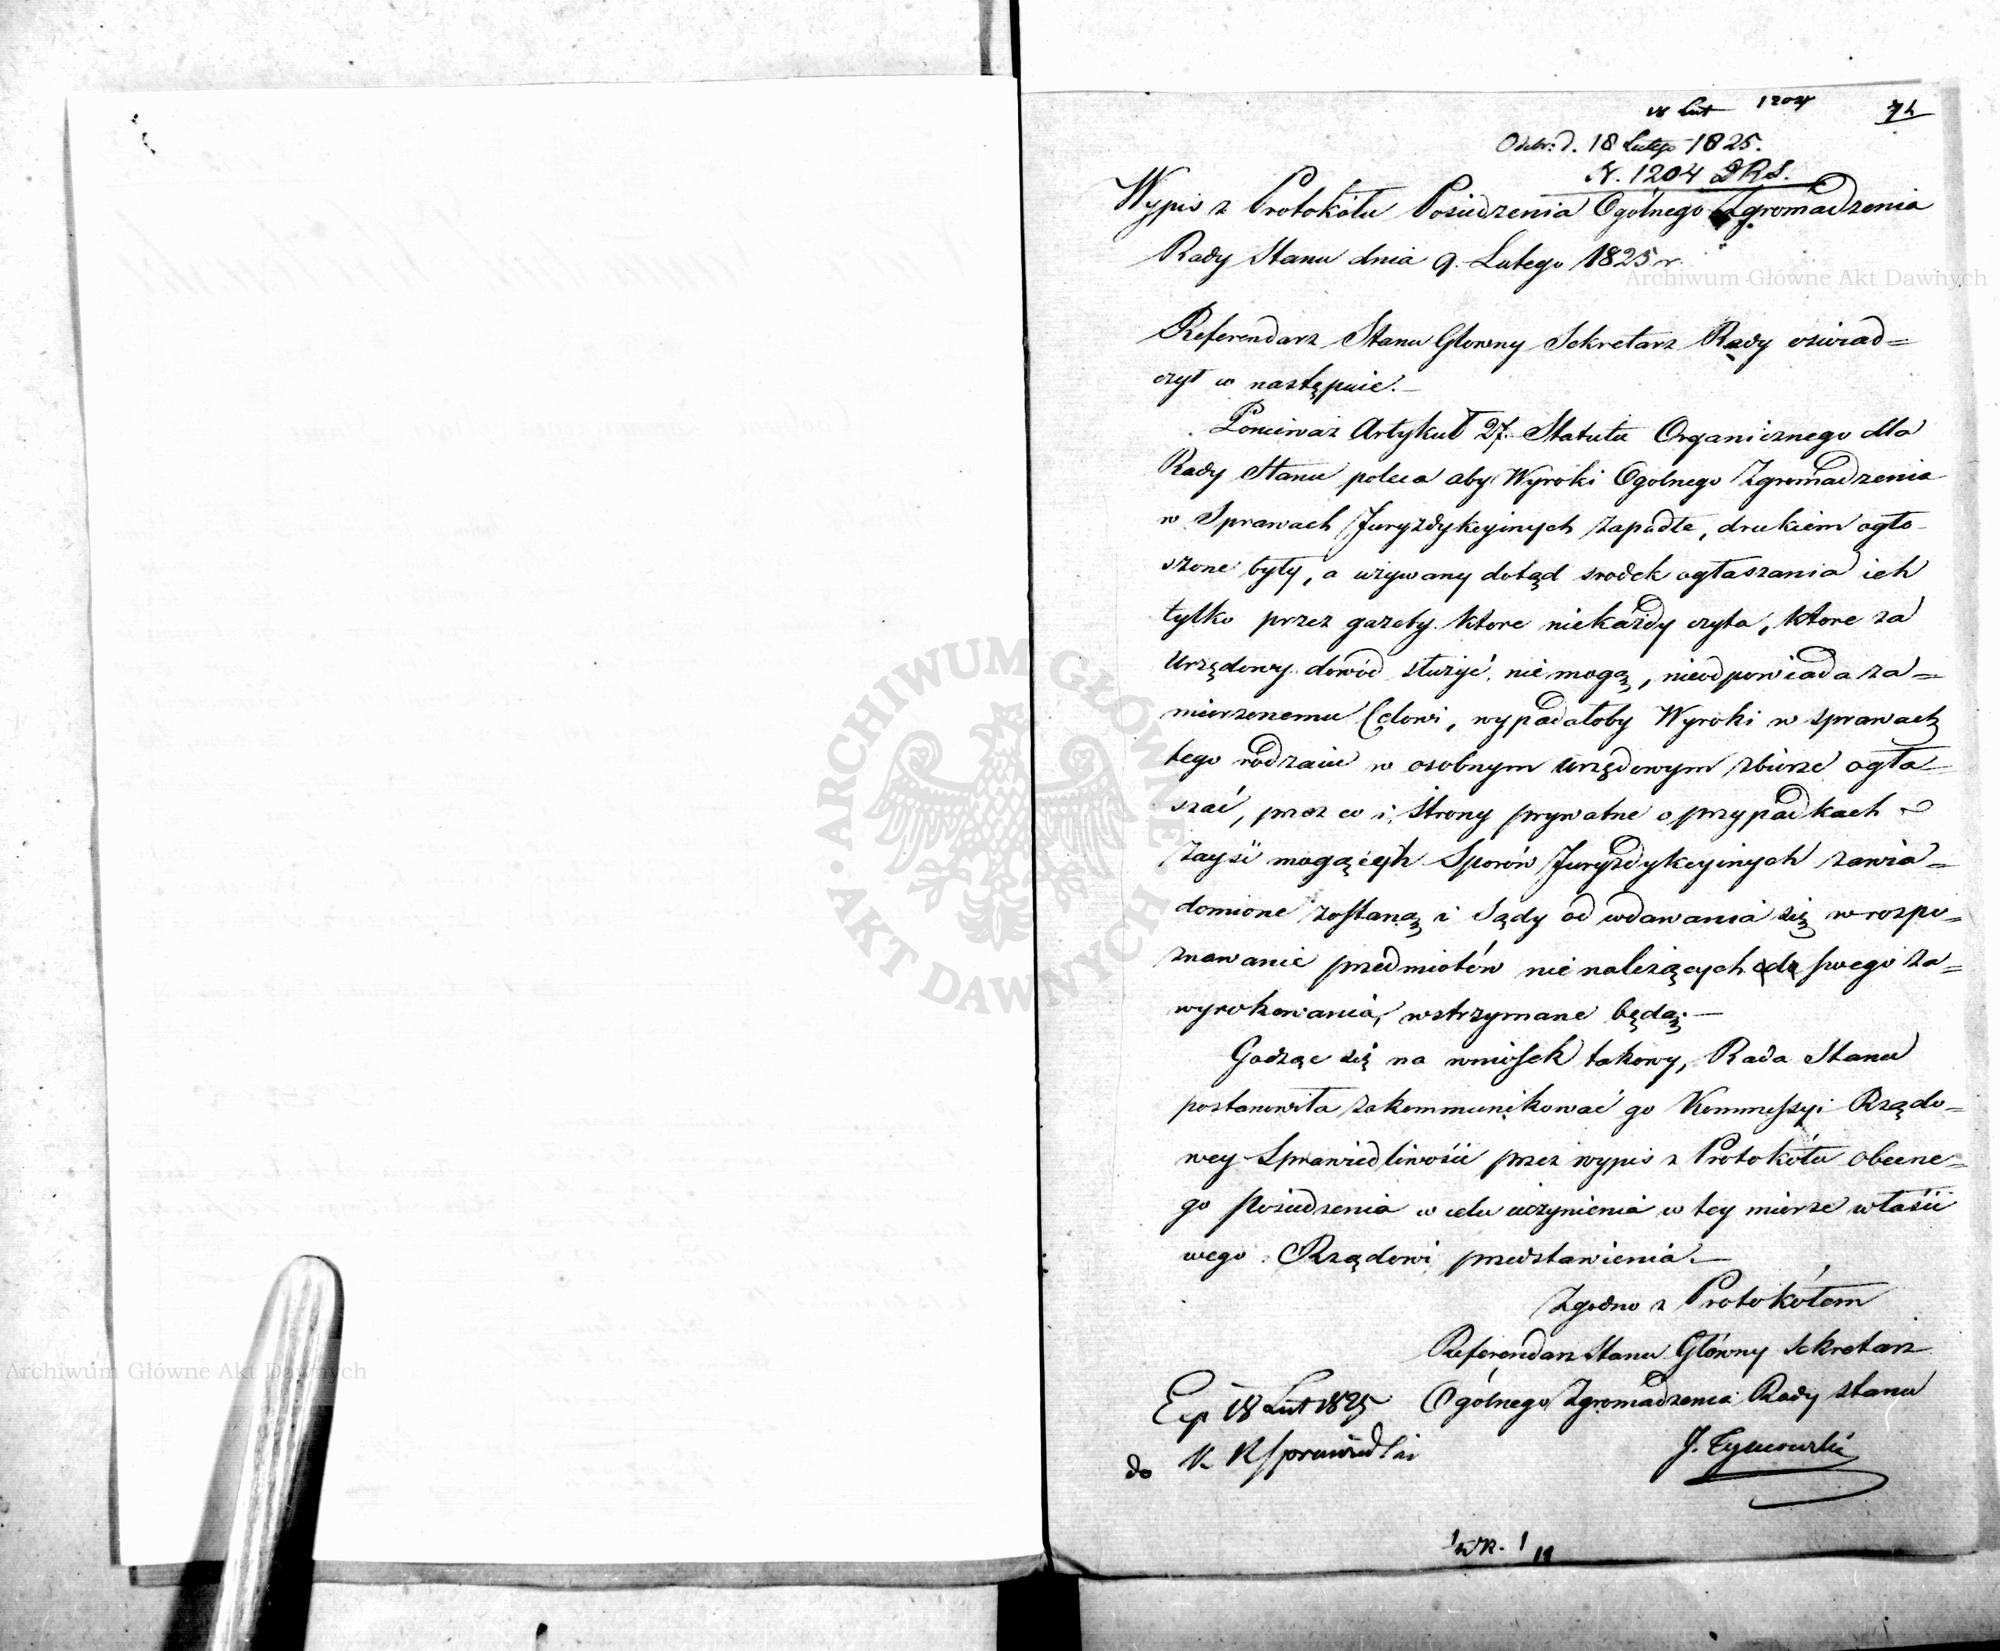 18 Lut 1204
Odebr: d. 18 Lutego 1825.
N. 1204 DRS.
Wypis z Protokółu Posiedzenia Ogólnego Zgromadzenia
Rady Stanu dnia 9. Lutego 1825 r.
Archiwum Główne Akt Dawnych
Referendarz Stanu Glowny Sekretarz Rady oswiad=
czył w następuie.—
Ponieważ Artykuł 27. Statutu Organicznego dla
Rady Stanu poleca aby Wyroki Ogolnego Zgromadzenia
w Sprawach Juryzdykcyinych zapadłe, drukiem ogło-
szone były, a używany dotąd srodek ogłaszania ich
tylko przez gazety ktore niekażdy czyta, ktore za
Urzędowy dowód służyć nie mogą, nieodpowiada za=
mierzonemu Celowi, wypadałoby Wyroki w sprawach
tego rodzaiu w osobnym urzędowym zbiorze ogła-
szać, przez co i Strony prywatne o przypadkach
zayśź mogących Sporów Juryzdykcyinych zawia=
domione zostaną i Sądy od wdawania się w rozpo=
znawanie przedmiotów nie należących do swego za=
wyrokowania, wstrzymane będą.—
Godząc się na wniosek takowy, Rada Stanu
postanowiła zakommunikować go Kommissyi Rządo=
wey Sprawiedliwości przez wypis z Protokółu obecne=
go Posiedzenia w celu uczynienia w tey mierze właści
wego Rządowi przedstawienia.—
Zgodno z Protokółem
Referendarz Stanu Główny Sekretarz
Ogólnego Zgromadzenia Rady Stanu
J. Tymowski
Exp 18 Lut 1825
do K R Sprawiedli
ARCHIWUM GŁÓWNE
AKT DAWNYCH
Archiwum Główne Akt Dawnych